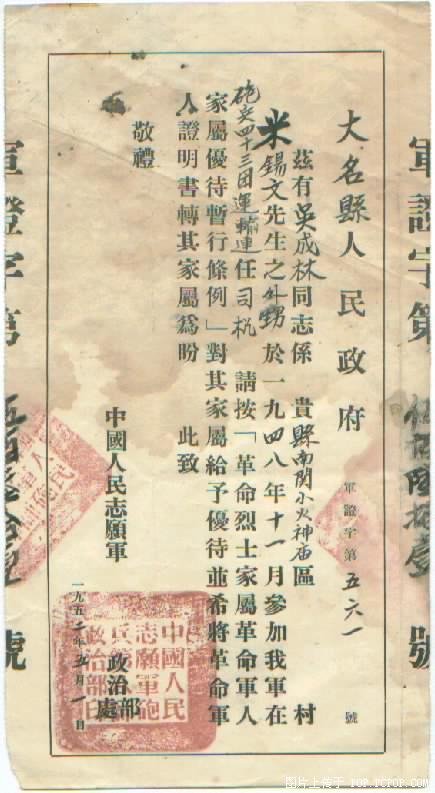 大名縣人民政府
軍證字第五六一號
茲有吳成林同志係 貴縣南関小火神庙區 村
米錫文先生之外甥於一九四八年十一月參加我軍在
砲兵四十三团運輸連任司机 請按「革命烈士家屬革命軍人
家屬優待暫行條例」對其家屬給予優待並希將革命軍
人證明書轉其家屬爲盼 此致
敬禮
中國人民志願軍
政治部
處
一九五二年五月一日
軍證字第
號
軍證字第
號
图片上传于 POP.PCPOP.COM